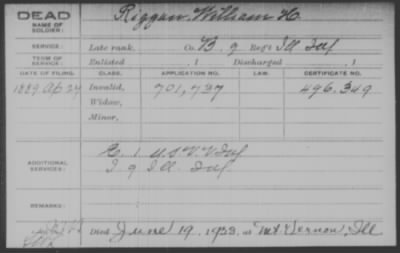 DEAD
NAME OF SOLDIER: Riggan, William H.
SERVICE: Late rank, Co. B, 9 Reg't Ill Inf
TERM OF SERVICE: Enlisted , 1 Discharged , 1
DATE OF FILING. CLASS. APPLICATION NO. LAW. CERTIFICATE NO.
1889 Ap 27 Invalid, 701,737 496.349
Widow,
Minor,
ADDITIONAL SERVICES: E. 1 U.S.V.V Inf
I 9 Ill. Inf.
REMARKS:
Died June 19, 1933, at Mt. Vernon, Ill